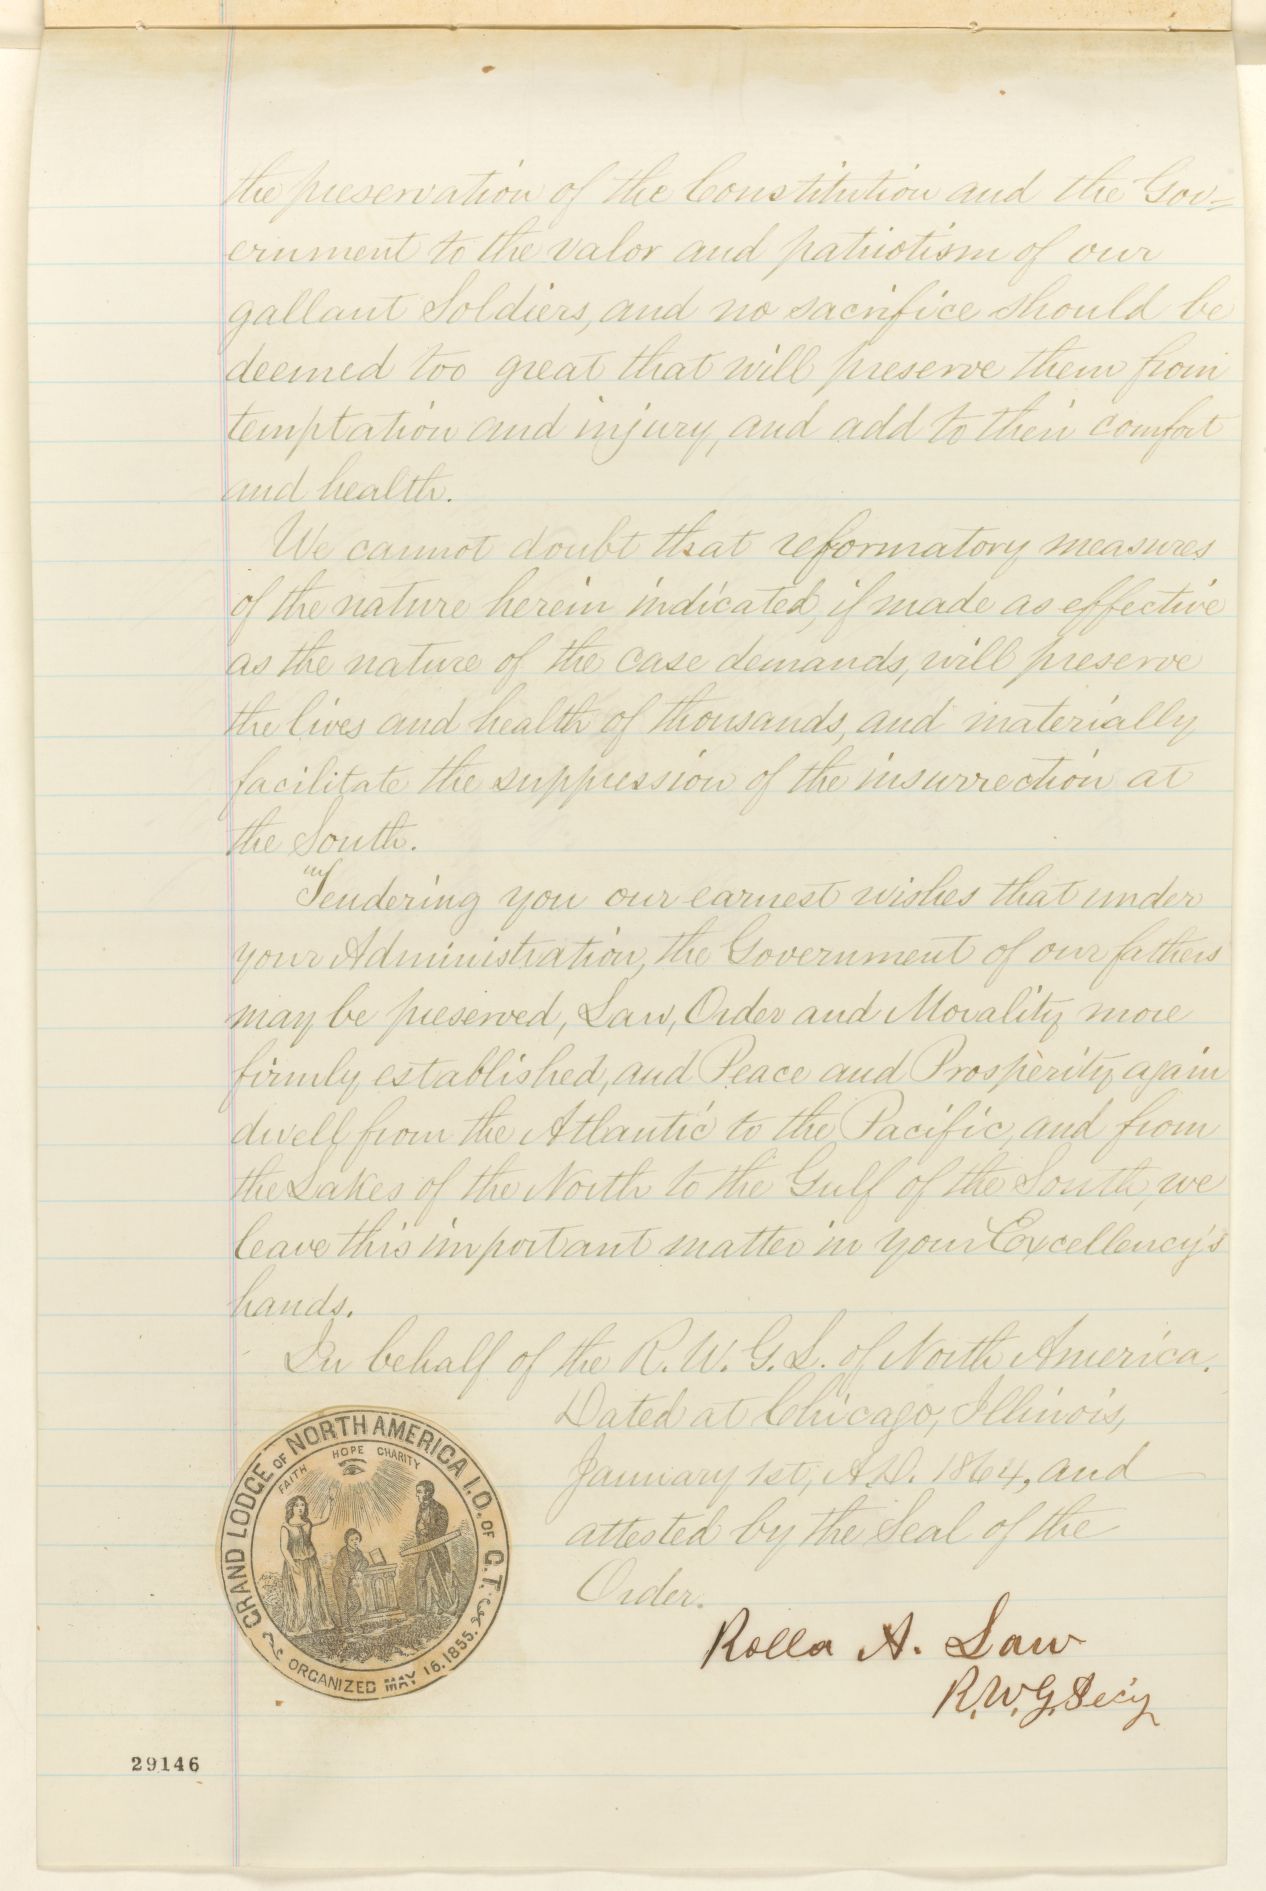 the preservation of the Constitution and the Gov=
ernment to the valor and patriotism of our
gallant Soldiers, and no sacrifice should be
deemed too great that will preserve them from
temptation and injury, and add to their comfort
and health.
We cannot doubt that reformatory measures
of the nature herein indicated, if made as effective
as the nature of the case demands, will preserve
the lives and health of thousands, and materially
facilitate the suppression of the insurrection at
the South.
Tendering you our earnest wishes that under
your Administration, the Government of our fathers
may be preserved, Law, Order and Morality more
firmly established, and Peace and Prosperity again
dwell from the Atlantic to the Pacific, and from
the Lakes of the North to the Gulf of the South, we
leave this important matter in your Excellency's
hands.
In behalf of the R. W. G. L. of North America.
Dated at Chicago, Illinois,
January 1st, A.D. 1864, and
attested by the Seal of the
Order.
GRAND LODGE OF NORTH AMERICA I.O. OF G.T.
FAITH HOPE CHARITY
ORGANIZED MAY 16. 1855.
Rolla A. Law
R.W.G. Sec'y
29146